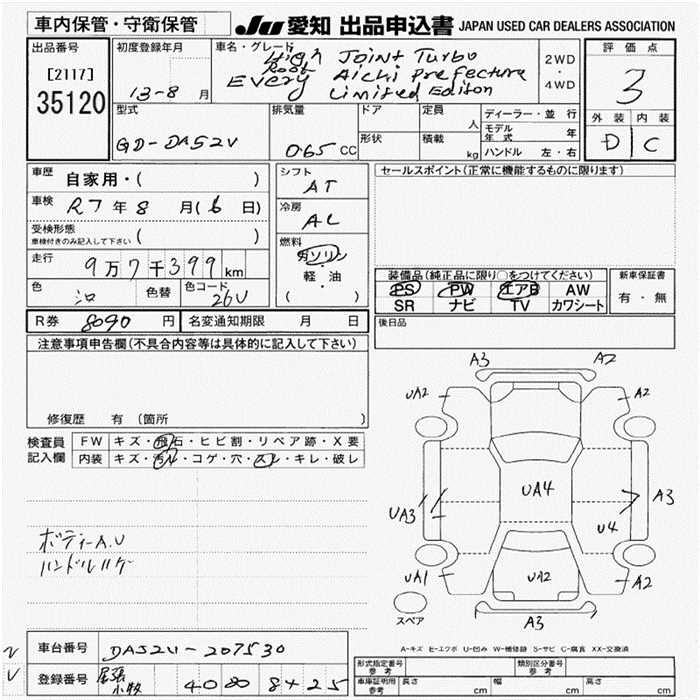 車内保管・守衛保管
JU 愛知 出品申込書 JAPAN USED CAR DEALERS ASSOCIATION
出品番号
[2117]
35120
初度登録年月
13-8 月
車名・グレード
High Roof
Joint Turbo
Every Aichi Prefecture
Limited Editon
2WD
・
4WD
評価点
3
外装 内装
D C
型式
GD-DA52V
排気量
065 CC
ドア
形状
定員
人
積載
kg
ディーラー・並行
モデル年式 年
ハンドル 左・右
車歴
自家用・( )
車検
R7 年 8 月 (6 日)
受検形態
車検付きのみ記入して下さい ( )
走行
9万7千399 km
色
シロ
色替
色コード
26U
シフト
AT
冷房
AC
燃料
ガソリン
・
軽・油
( )
セールスポイント(正常に機能するものに限ります)
装備品(純正品に限り○をつけてください)
PS PW エアB AW
SR ナビ TV カワシート
新車保証書
有・無
R券 8090 円
名変通知期限 月 日
後日品
注意事項申告欄(不具合内容等は具体的に記入して下さい)
修復歴 有 (箇所 )
検査員
記入欄
FW キズ・飛石・ヒビ割・リペア跡・X要
内装 キズ・汚レ・コゲ・穴・スレ・キレ・破レ
ボディーA.U
ハンドルハゲ
A3
A2
UA2
A2
UA3
UA4
A3
U4
UA1
UA2
A2
A3
スペア
A-キズ E-エクボ U-凹み W-補修跡 S-サビ C-腐食 XX-交換済
車台番号 DA52V-207530
登録番号 尾張小牧 40 80 8+25
形式指定番号
参考
類別区分番号
参考
車庫証明用
参考
長さ cm
幅 cm
高さ cm